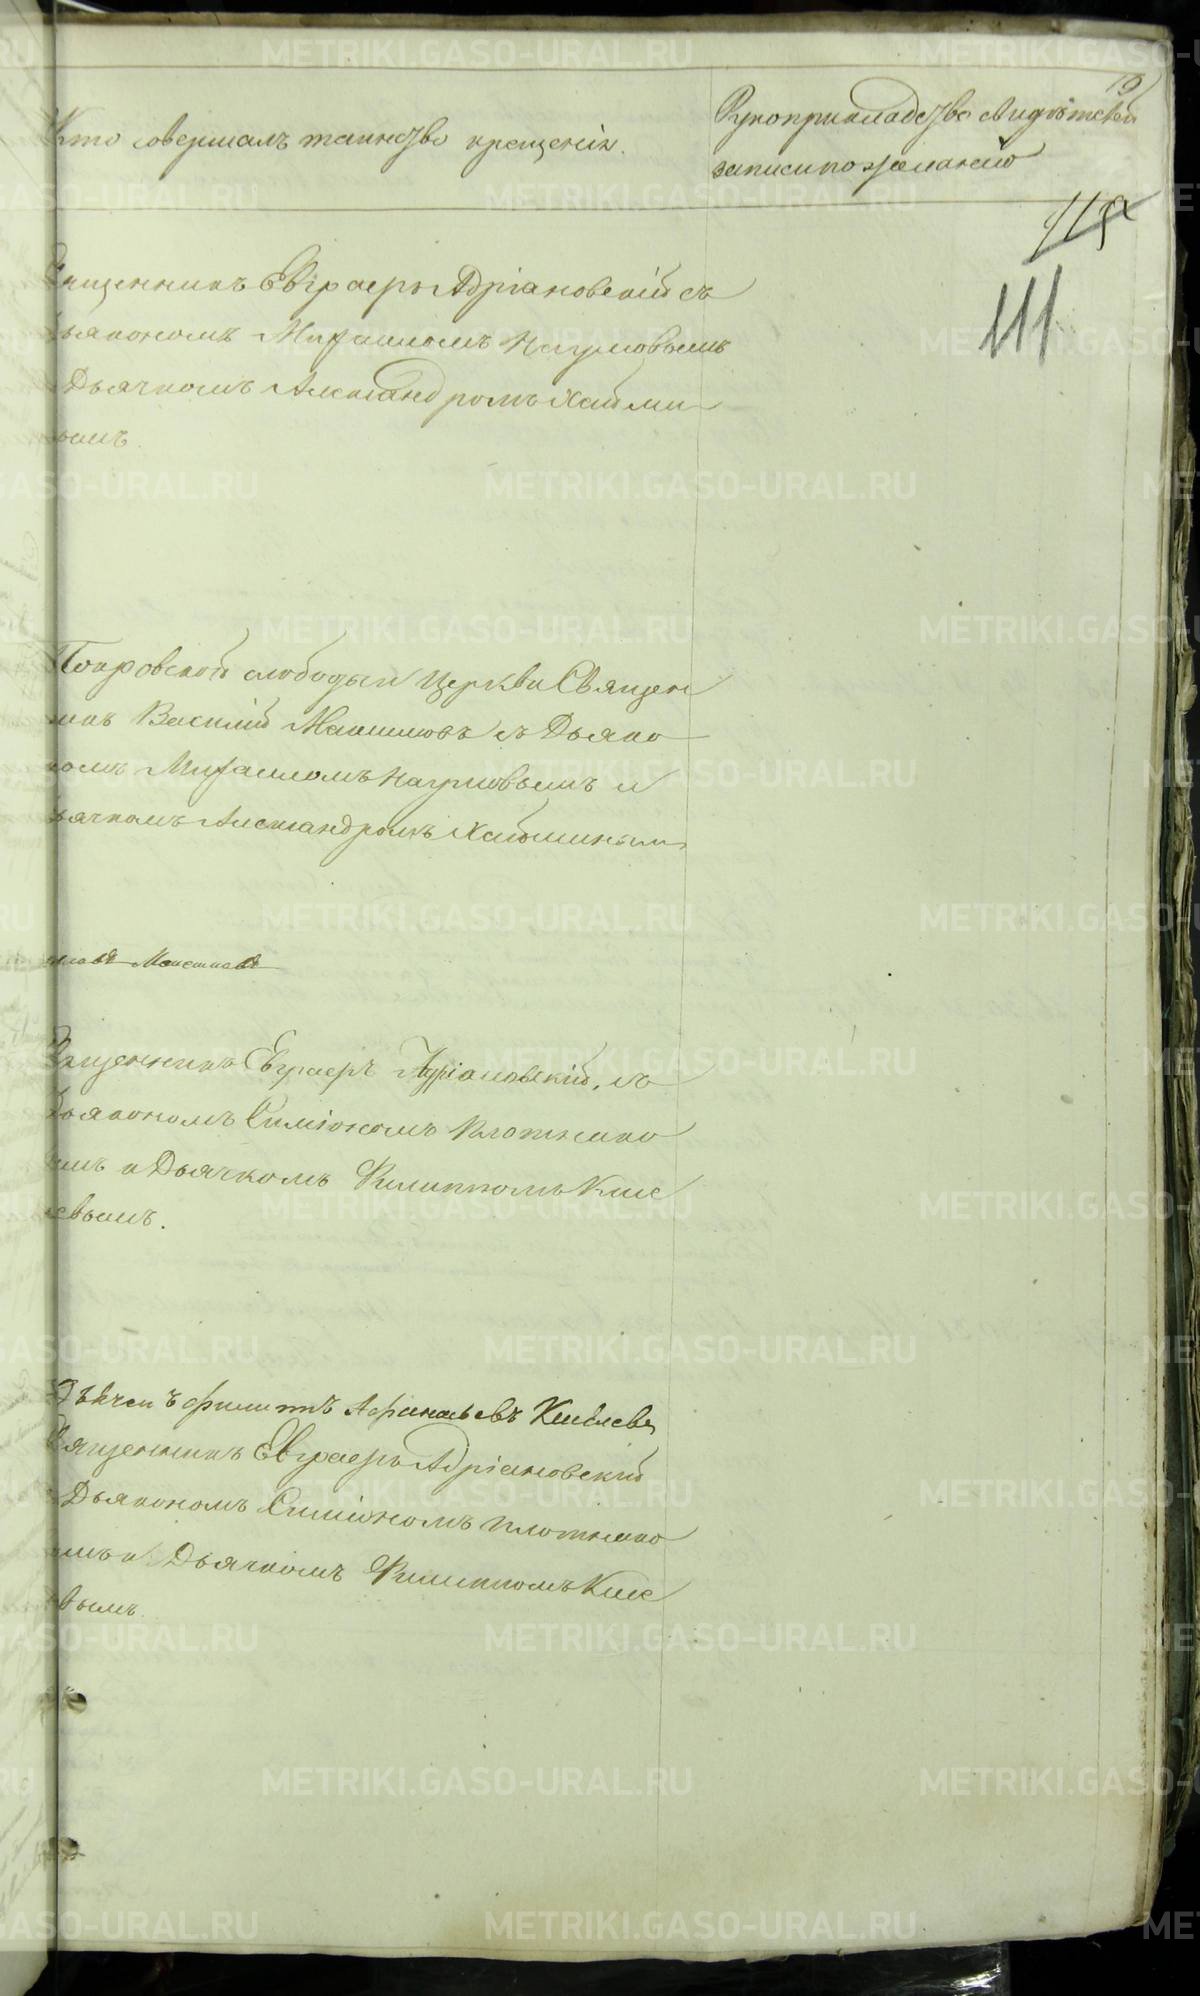 19
Кто совершалъ таинство крещенія.
Рукоприкладство свидѣтелей
записи по желанію
115
111
Священникъ Евграфъ Адріановскій съ
Дьякономъ Михаиломъ Наумовымъ
Дьячкомъ Александромъ
нымъ.
Покровской слободы и Церкви Священ
никъ Василій Максимовъ съ Дьяко
номъ Михаиломъ Наумовымъ и
Дьячкомъ Александромъ
Священникъ Евграфъ Адріановскій, съ
Дьякономъ Симіономъ Плотнико
вымъ и Дьячкомъ Филиппомъ Кисе
левымъ.
Дьячекъ Филиппъ Афанасьевъ Киселевъ
Священникъ Евграфъ Адріановскій
Дьякономъ Симіономъ Плотнико
вымъ и Дьячкомъ Филиппомъ Кисе
левымъ
METRIKI.GASO-URAL.RU